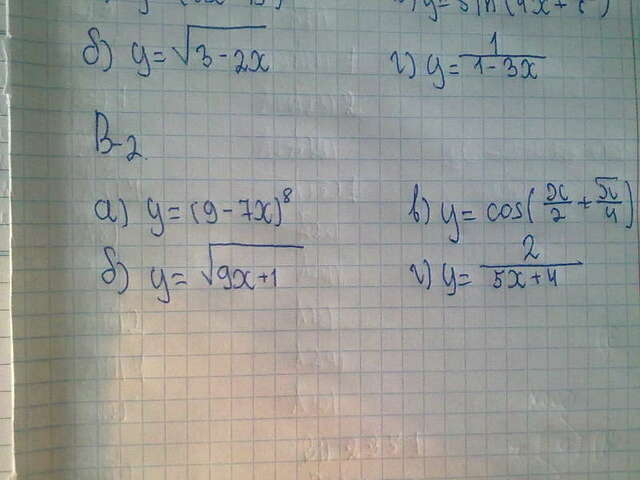 б) y = √3 - 2x г) y = 1/(1 - 3x)
В-2.
а) y = (9 - 7x)⁸ в) y = cos(x/2 + π/4)
б) y = √9x+1 г) y = 2/(5x+4)